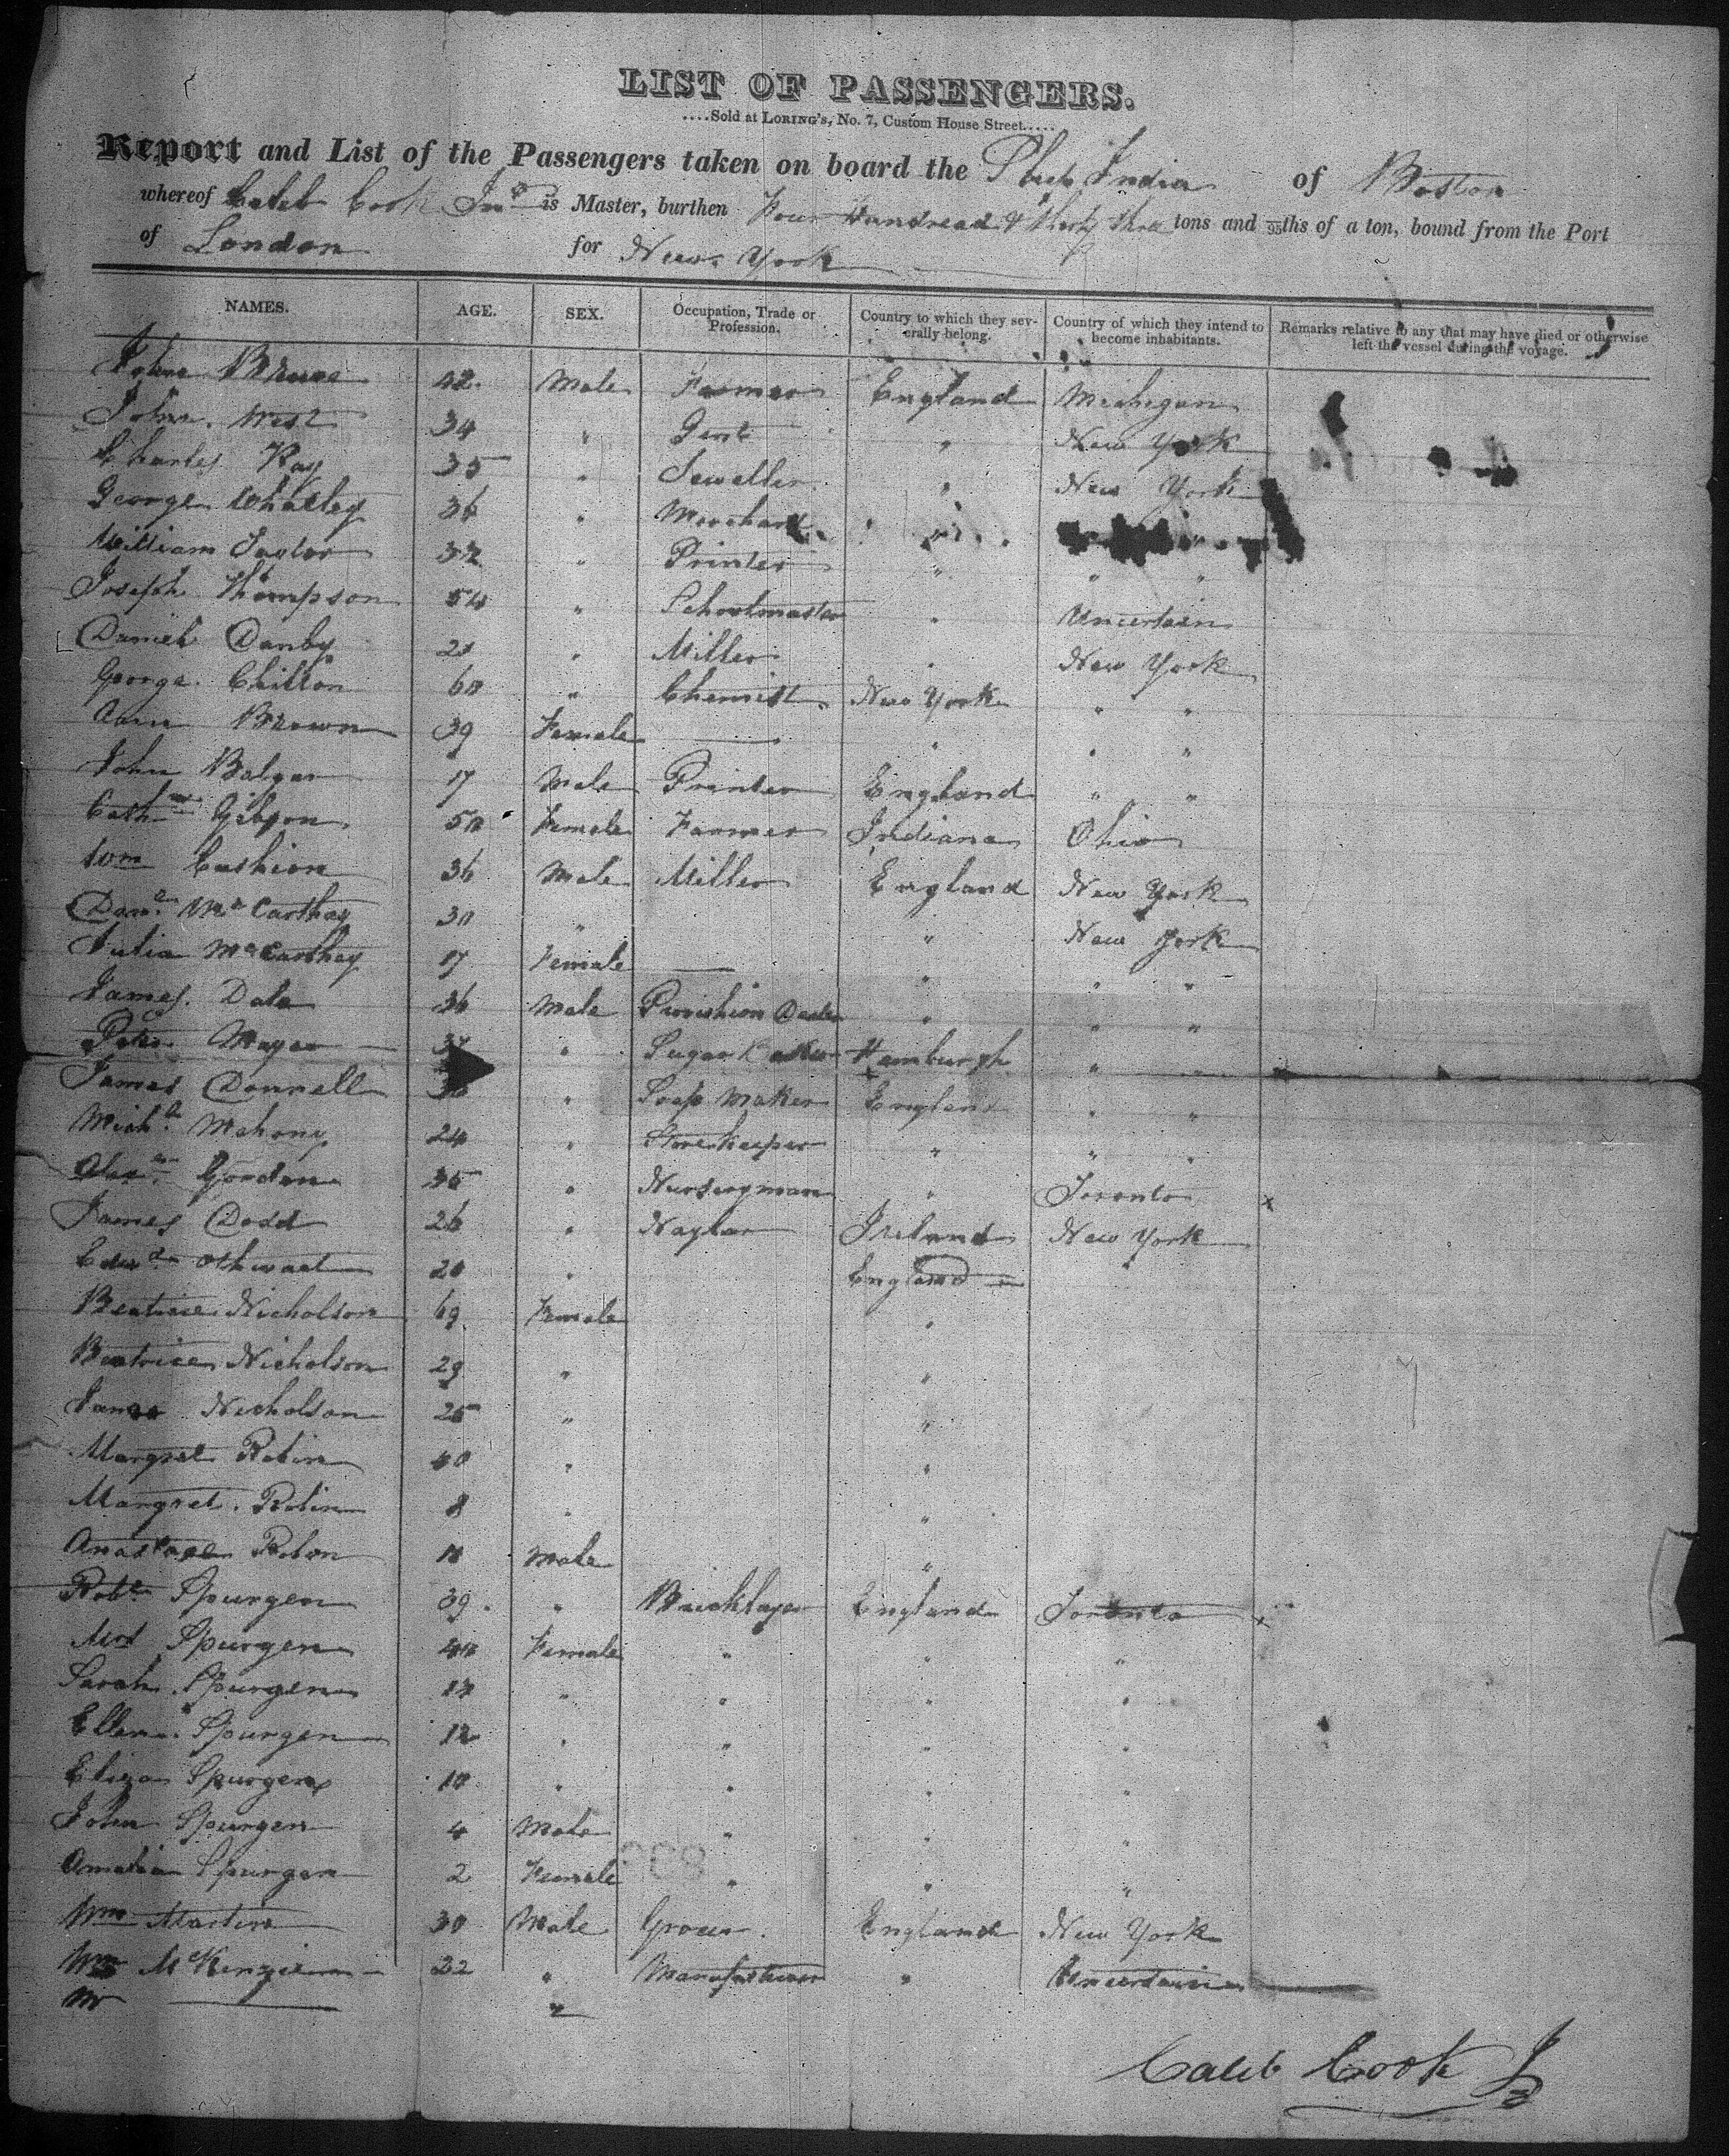 LIST OF PASSENGERS.
....Sold at LORING's, No. 7, Custom House Street.....
Report and List of the Passengers taken on board the Ship India of Boston
whereof Caleb Cook Jnr is Master, burthen Four Hundread & thirty three tons and 95ths of a ton, bound from the Port
of London for New York
NAMES. AGE. SEX. Occupation, Trade or Profession. Country to which they severally belong. Country of which they intend to become inhabitants. Remarks relative to any that may have died or otherwise left the vessel during the voyage.
John 42 Male Farmer England Michigan
John West 34 " Gent " New York
Charles Kay 35 " Jeweller " New York
George Whatley 36 " Merchant " "
William Taylor 32 " Printer " " "
Joseph Thompson 54 " Schoolmaster " Uncertain
Daniel Danby 21 " Miller " New York
George Chilton 60 " Chemist New York " "
Ann Brown 39 Female — " " "
John Bolger 17 Male Printer England " "
Cath Gibson 50 Female Farmer Indiana Ohio
Wm Cushion 36 Male Miller England New York
Danl McCarthay 30 " " New York
Julia McCarthay 17 Female — " " "
James Dale 36 Male Provishion Dealer " " "
Peter Mayer " Sugar Baker Hamburgh " "
James Donnell " Soap Maker England " "
Michl Mahony 24 " Storekeeper " " "
Alexr Gordon 35 " Nurseryman " Toronto x
James Dodd 26 " Naylor Ireland New York
Edwd Othwaet 20 " England "
Beatrice Nicholson 69 Female "
Beatrice Nicholson 29 " "
Nicholson 25 " "
Margret Robin 40 " "
Margret Robin 8 " "
Robin Male "
Robt Spurgen 39 " Bricklayer England Toronto x
Mrs Spurgen 40 Female " " "
Sarah Spurgen " " " "
Ellen Spurgen 12 " " " "
Eliza Spurgen 10 " " " "
John Spurgen 4 Male " " "
Amelia Spurgen 2 Female " " "
Wm Martin 30 Male Grocer England New York
Wm McKenzie 22 " Manufacturer " Uncertain
Caleb Cook Jr